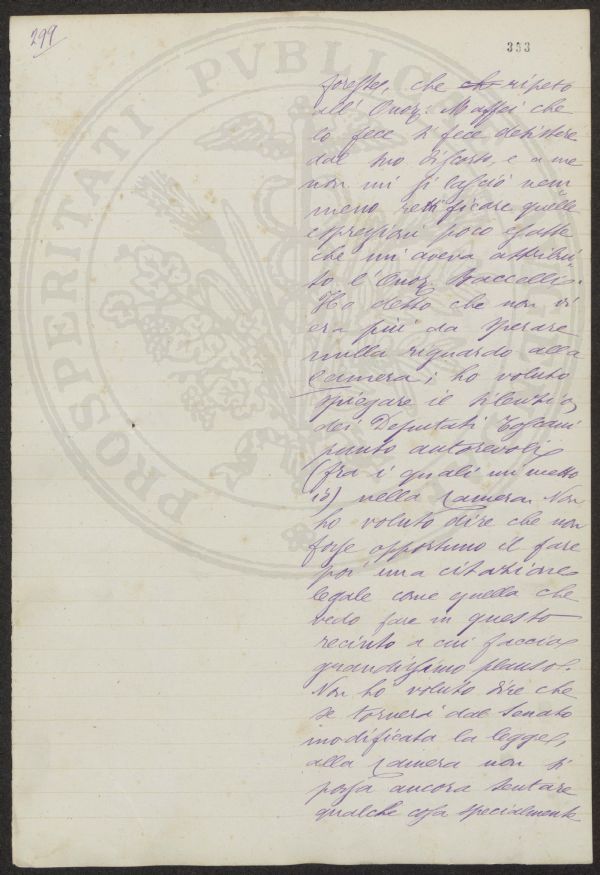 299
333
foresto, che ch ripeto
all' Onor. Maffei che
lo fece si fece desistere
dal suo discorso, e a me
non mi si lasciò nem
meno rettificare quelle
espressioni poco esatte
che mi aveva attribui
to l' Onor. Baccelli.
Ho detto che non vi
era più da sperare
nulla riguardo alla
Camera; ho voluto
spiegare il silenzio
dei Deputati Toscani
punto autorevoli
(fra i quali mi metto
io) nella Camera. Non
ho voluto dire che non
fosse opportuno il fare
poi una citazione
legale come quella che
vedo fare in questo
recinto a cui faccio
grandissimo plauso.
Non ho voluto dire che
se tornerà dal Senato
modificata la legge,
alla Camera non si
possa ancora tentare
qualche cosa specialmente
PROSPERITATI PVBLICAE